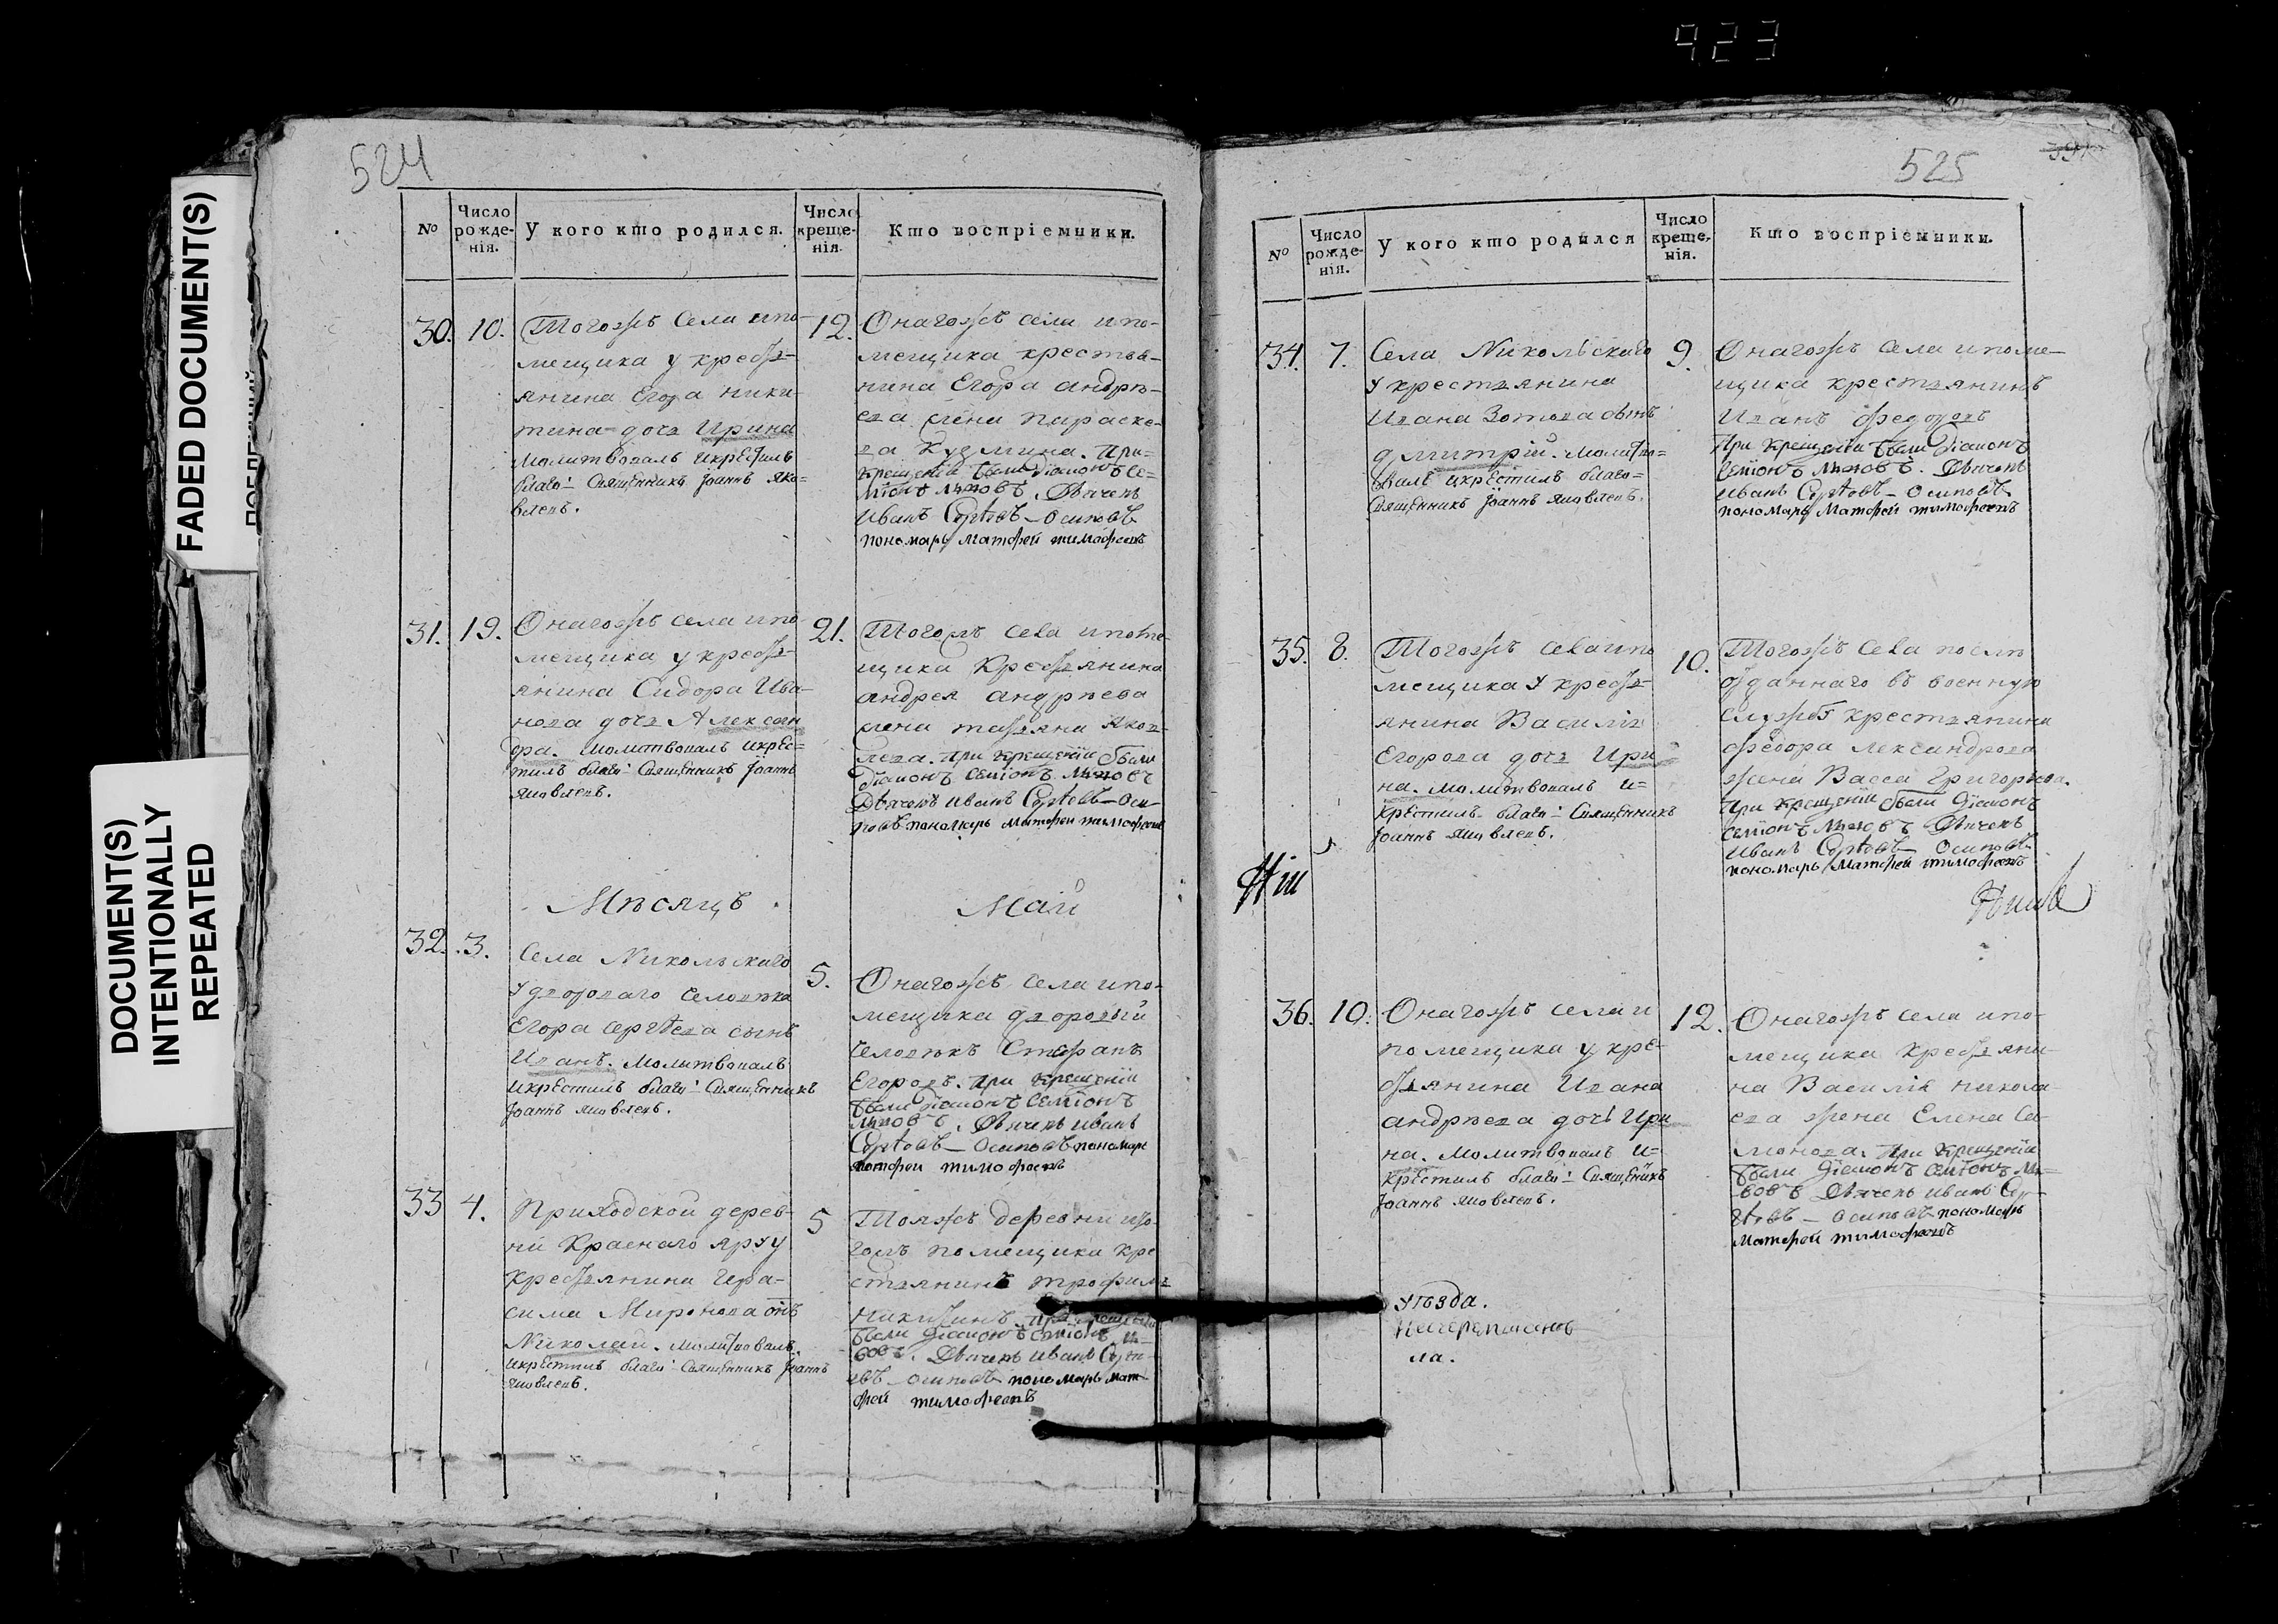 923
FADED DOCUMENT(S)
DOCUMENT(S)
INTENTIONALLY
REPEATED
524
№
Число
рожде-
нія.
У кого кто родился.
Число
креще-
нія.
Кто воспріемники.
30.
10.
Тогожъ села ипо-
мещика у крест-
янина Егора ники-
тина дочь Ирина
Молитвовалъ икрестилъ
благо: Священникъ Іоаннъ Яко-
влевъ.
12.
Онагожъ села ипо-
мещика крестья-
нина Егора андре-
ева жена параске-
ва Кузмина. При-
крещеніи были діаконъ Се-
міонъ Дьячекъ
иванъ Осиповъ
пономарь матфей тимофеевъ
31.
19.
Онагожъ села ипо
мещика у крест-
янина Сидора Ива-
нова дочь Александ
ра. молитвовалъ икрес-
тилъ благо: Священникъ Іоаннъ
яковлевъ.
21.
Тогожъ села ипоме-
щика Крестьянина
андрея андреева
жена татьяна яков-
лева. при крещеніи были
діаконъ Семіонъ
Дьячекъ иванъ Оси-
повъ пономарь матфей тимофеевъ
Мѣсяцъ
Май
32.
3.
Села Никольскаго
у двороваго человѣка
Егора сергѣева сынъ
Иванъ. Молитвовалъ
икрестилъ благо: Священникъ
Іоаннъ яковлевъ.
5.
Онагожъ села ипо-
мещика дворовый
человѣкъ Стефанъ
Егоровъ. при крещеніи
были діаконъ Семіонъ
Дьячекъ иванъ
Осиповъ пономарь
матфей тимофеевъ
33
4.
Приходской дерев-
ни Краснаго яру у
крестьянина Гера-
сима Миронова сынъ
Николай. молитвовалъ
икрестилъ благо: Священникъ Іоаннъ
яковлевъ.
5
Тояжъ деревни ито-
гожъ помещика кре
стьянинъ трофимъ
Никитинъ. при крещеніи
были діаконъ Семіонъ
Дьячекъ иванъ
осиповъ пономарь мат-
фей тимофеевъ
525
№
Число
рожде-
нія.
У кого кто родился
Число
креще-
нія.
Кто воспріемники.
34.
7.
Села Никольскаго
у крестьянина
Ивана Зотова сынъ
дмитрій. молитво-
валъ икрестилъ благо-
Священникъ Іоаннъ яковлевъ.
9.
Онагожъ села ипоме-
щика крестьянинъ
Иванъ федоровъ
При крещеніи были діаконъ
Семіонъ Дьячекъ
иванъ Осиповъ
пономарь Матфей тимофеевъ
35.
8.
Тогожъ села ипо
мещика у крест-
янина Василія
Егорова дочь Ири
на. молитвовалъ и-
крестилъ благо: Священникъ
Іоаннъ яковлевъ.
10.
Тогожъ села послѣ
отданнаго въ военную
службу крестьянина
федора Александрова
жена Васса Григорьева.
При крещеніи были діаконъ
Семіонъ Дьячекъ
иванъ Осиповъ
пономарь Матфей тимофеевъ
36.
10.
Онагожъ села и
помещика у кре-
стьянина Ивана
андреева дочь Ири
на. Молитвовалъ и-
крестилъ благо: Священникъ
Іоаннъ яковлевъ.
12.
Онагожъ села ипо-
мещика крестьяни-
на Василія никола-
ева жена Елена Са-
монова. при крещеніи
были діаконъ Семіонъ
Дьячекъ иванъ
осиповъ пономарь
Матфей тимофеевъ
уѣзда.